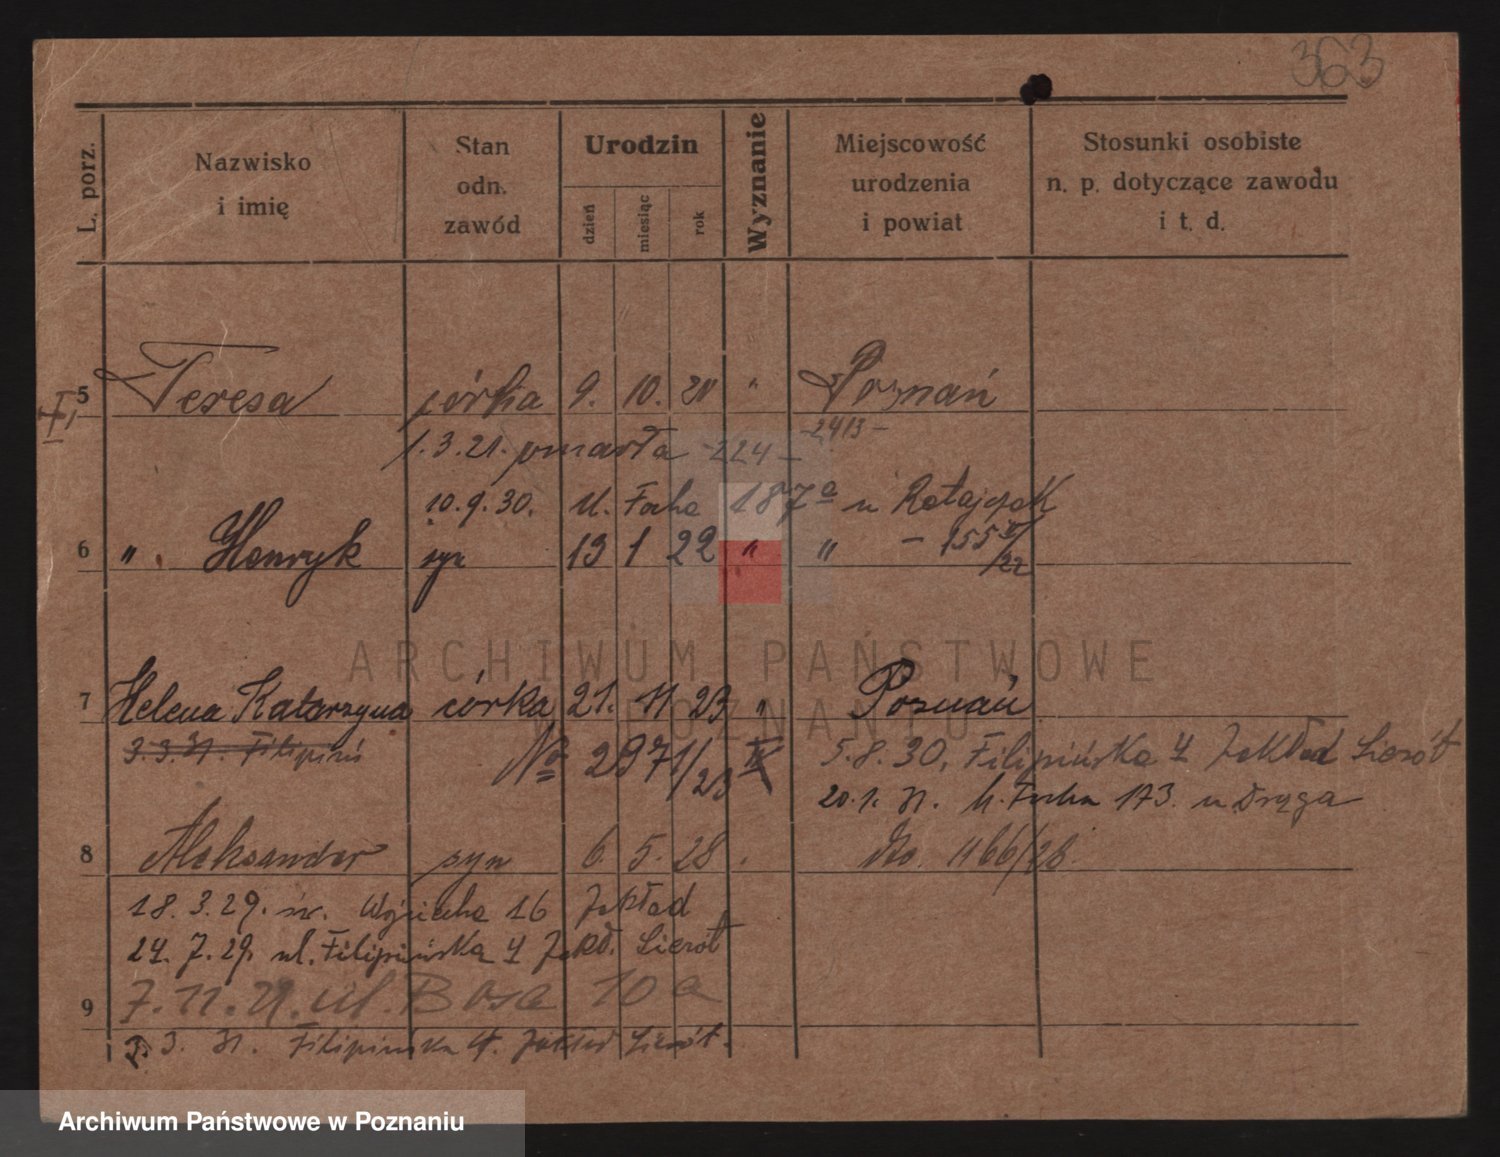 363
L. porz.
Nazwisko
i imię
Stan
odn.
zawód
Urodzin
dzień
miesiąc
rok
Wyznanie
Miejscowość
urodzenia
i powiat
Stosunki osobiste
n. p. dotyczące zawodu
i t. d.
5 Teresa córka 9. 10. 20 " Poznań
1.3.21. zmarła -224- -2413-
10.9.30. M. Focha 187a u Ratajczak
6 " Henryk syn 13 1 22 " " - 155 /22
7 Helena Katarzyna córka 21. 11 23 " Poznań
3.3.31. Filipiń
No 2971/23
5.8.30. Filipińska 4 Zakład Sierót
20.1.31. M. Focha 173. u Drzga
8 Aleksander syn 6. 5. 28 No. 1166/28
18.3.29. św. Wojciecha 16 Zakład
24.7.29. ul. Filipińska 4 Zakł. Sierót
9 7.11.29. ul. Bosa 10a
3. 31. Filipińska 4. Zakład Sierót.
ARCHIWUM PAŃSTWOWE
W POZNANIU
Archiwum Państwowe w Poznaniu